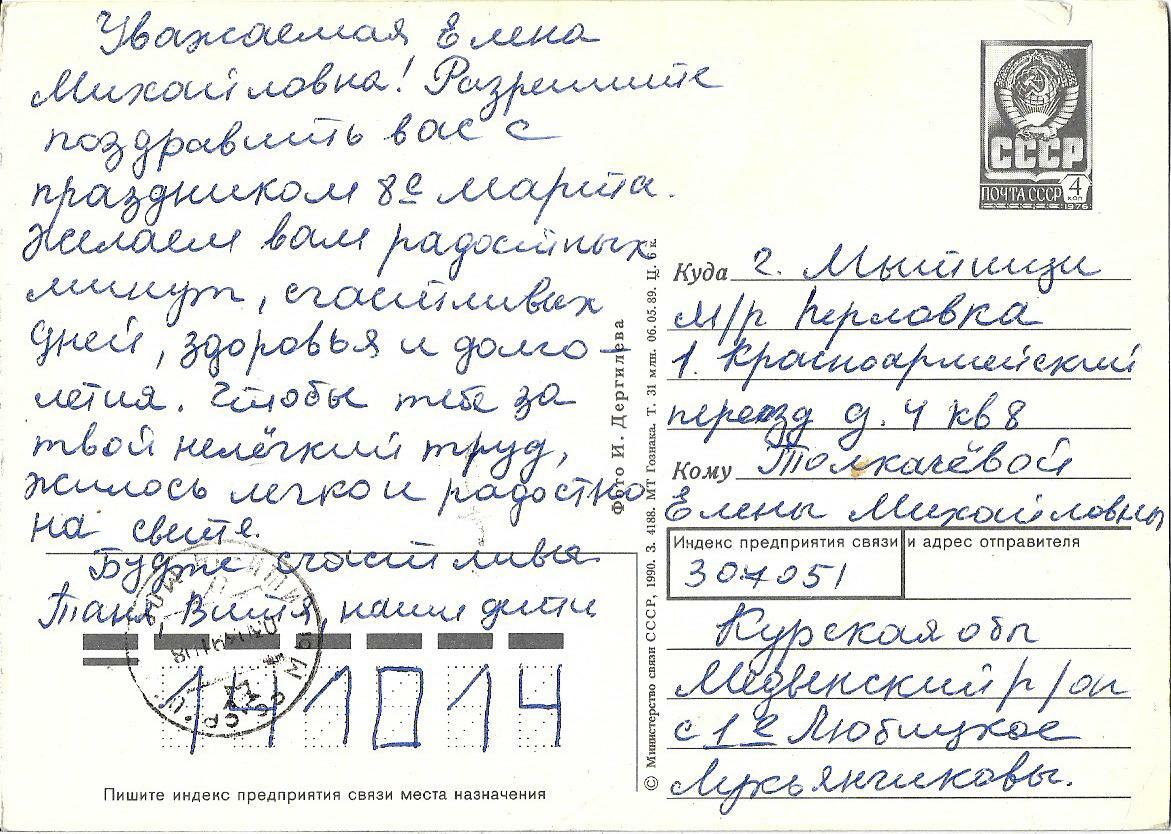 Уважаемая Елена
Михайловна! Разрешите
поздравить вас с
праздником 8е марта.
Желаем вам радостных
минут, счастливых
дней, здоровья и долго-
летия. Чтобы тебе за
твой нелёгкий труд,
жилось легко и радостно
на свете.
Будте счастливы
Таня, Витя, наши дети
141014
Пишите индекс предприятия связи места назначения
Фото И. Дергилева
© Министерство связи СССР, 1990. З. 4188. МТ Гознака. Т. 31 млн. 06.05.89. Ц. 6 к.
СССР
ПОЧТА СССР 4 коп
1976
Куда г. Мытищи
м/р Перловка
1. Красноармейский
переезд д. 4 кв 8
Кому Толкачёвой
Елены Михайловны
Индекс предприятия связи и адрес отправителя
307051
Курская обл
Медвенский р/он
с 1е Любицкое
Лукьянчиковы.